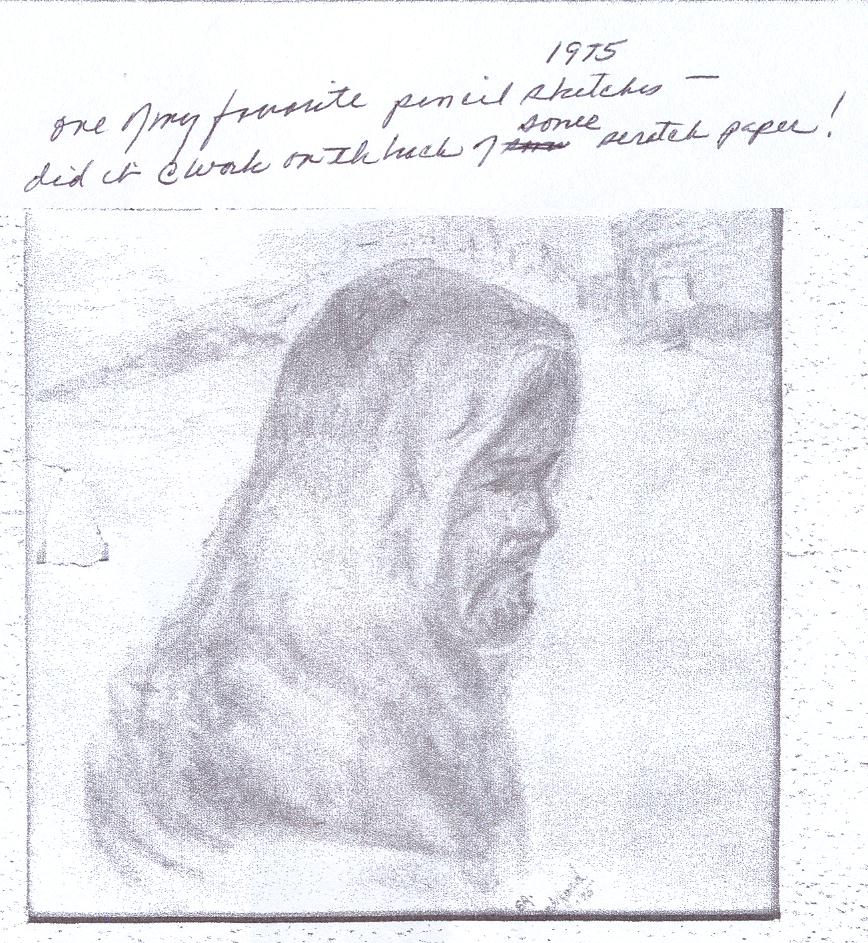 1975
one of my favorite pencil sketches —
did it @ work on th back of some scratch paper!